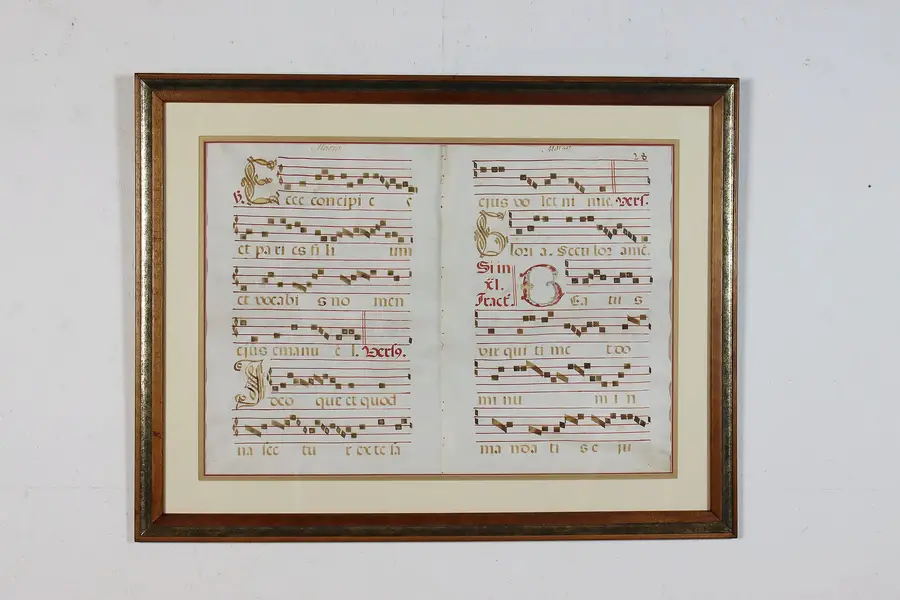 Marzo
℟. Ecce concipi e e
et pa ri es fi li um
et vocabi s no men
ejus emanu e l. Vers9.
Ideo que et quod
na sec tu r ex te sa
Marzo
28
ejus vo let ni mis. Vers.
Glori a. Secu lor amē.
Si in
Tract. BEa tu s
vir qui ti me t do
mi nu m i n
ma nda ti s e ju